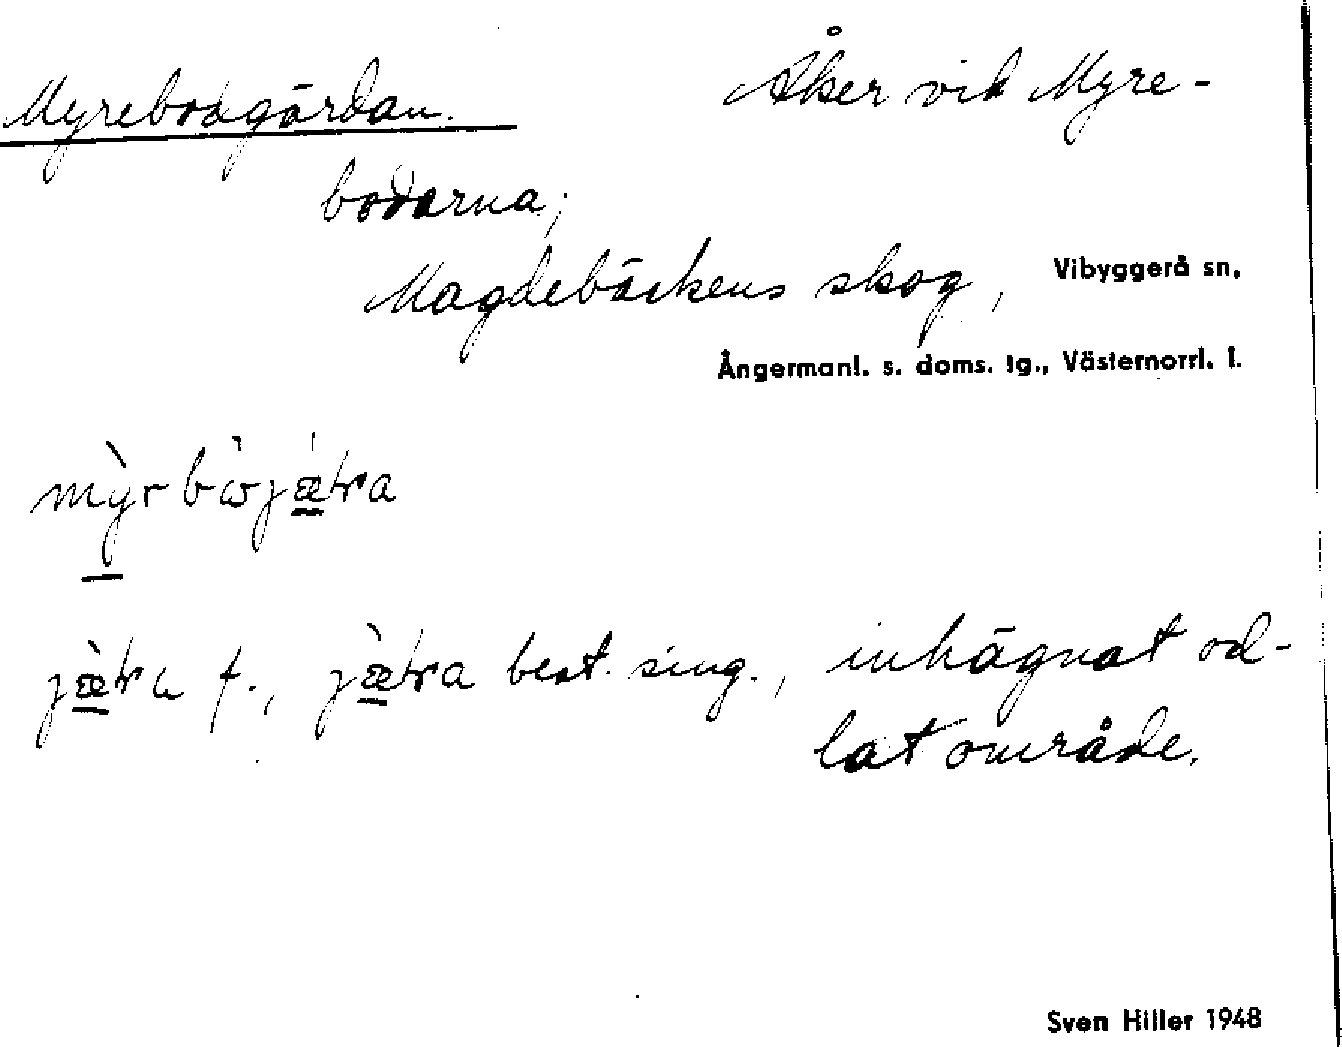 Myrebodgärdan. Åker vid Myre-
bodarna;
Magdebäckens skog, Vibyggerå sn,
Ångermanl. s. doms. tg., Västernorrl. l.
f., best. sing., inhägnat od-
lat område.
Sven Hiller 1948